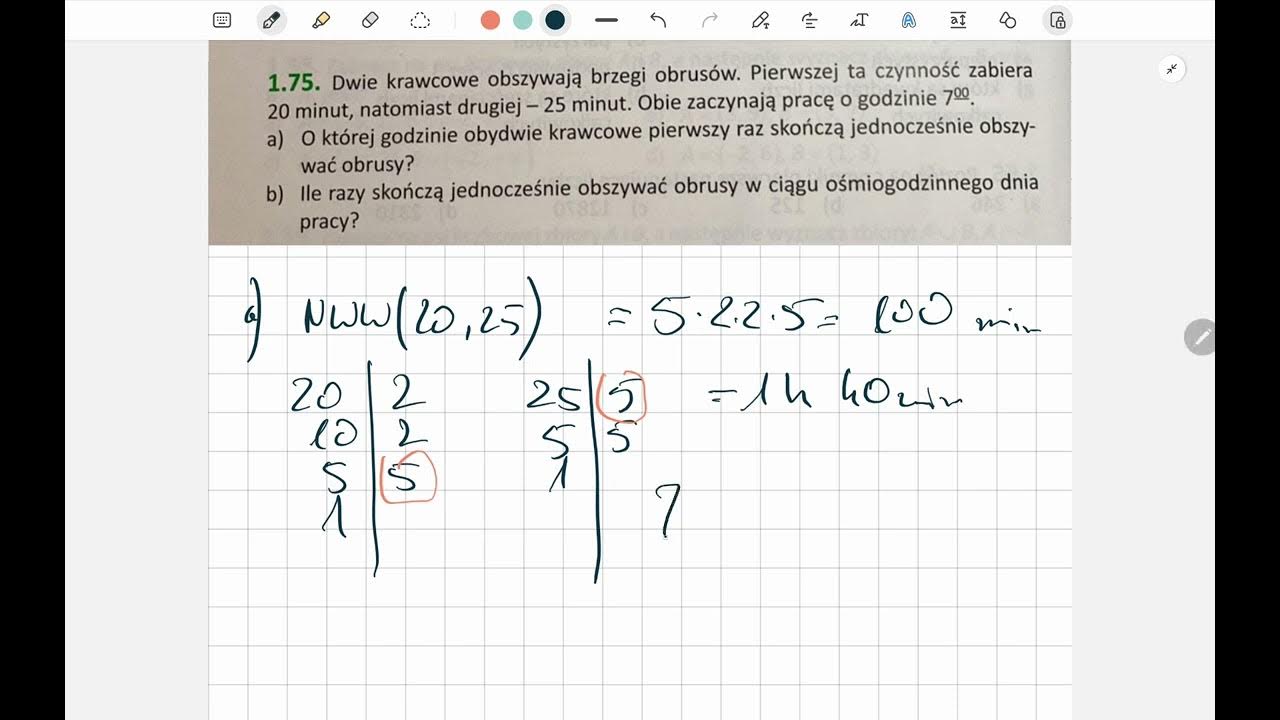 1.75. Dwie krawcowe obszywają brzegi obrusów. Pierwszej ta czynność zabiera
20 minut, natomiast drugiej – 25 minut. Obie zaczynają pracę o godzinie 7⁰⁰.
a) O której godzinie obydwie krawcowe pierwszy raz skończą jednocześnie obszy-
wać obrusy?
b) Ile razy skończą jednocześnie obszywać obrusy w ciągu ośmiogodzinnego dnia
pracy?
a) NWW(20,25) = 5·2·2·5= 100 min
20 | 2 25 | 5 = 1h 40min
10 | 2 5 | 5
5 | 5 1
1 7